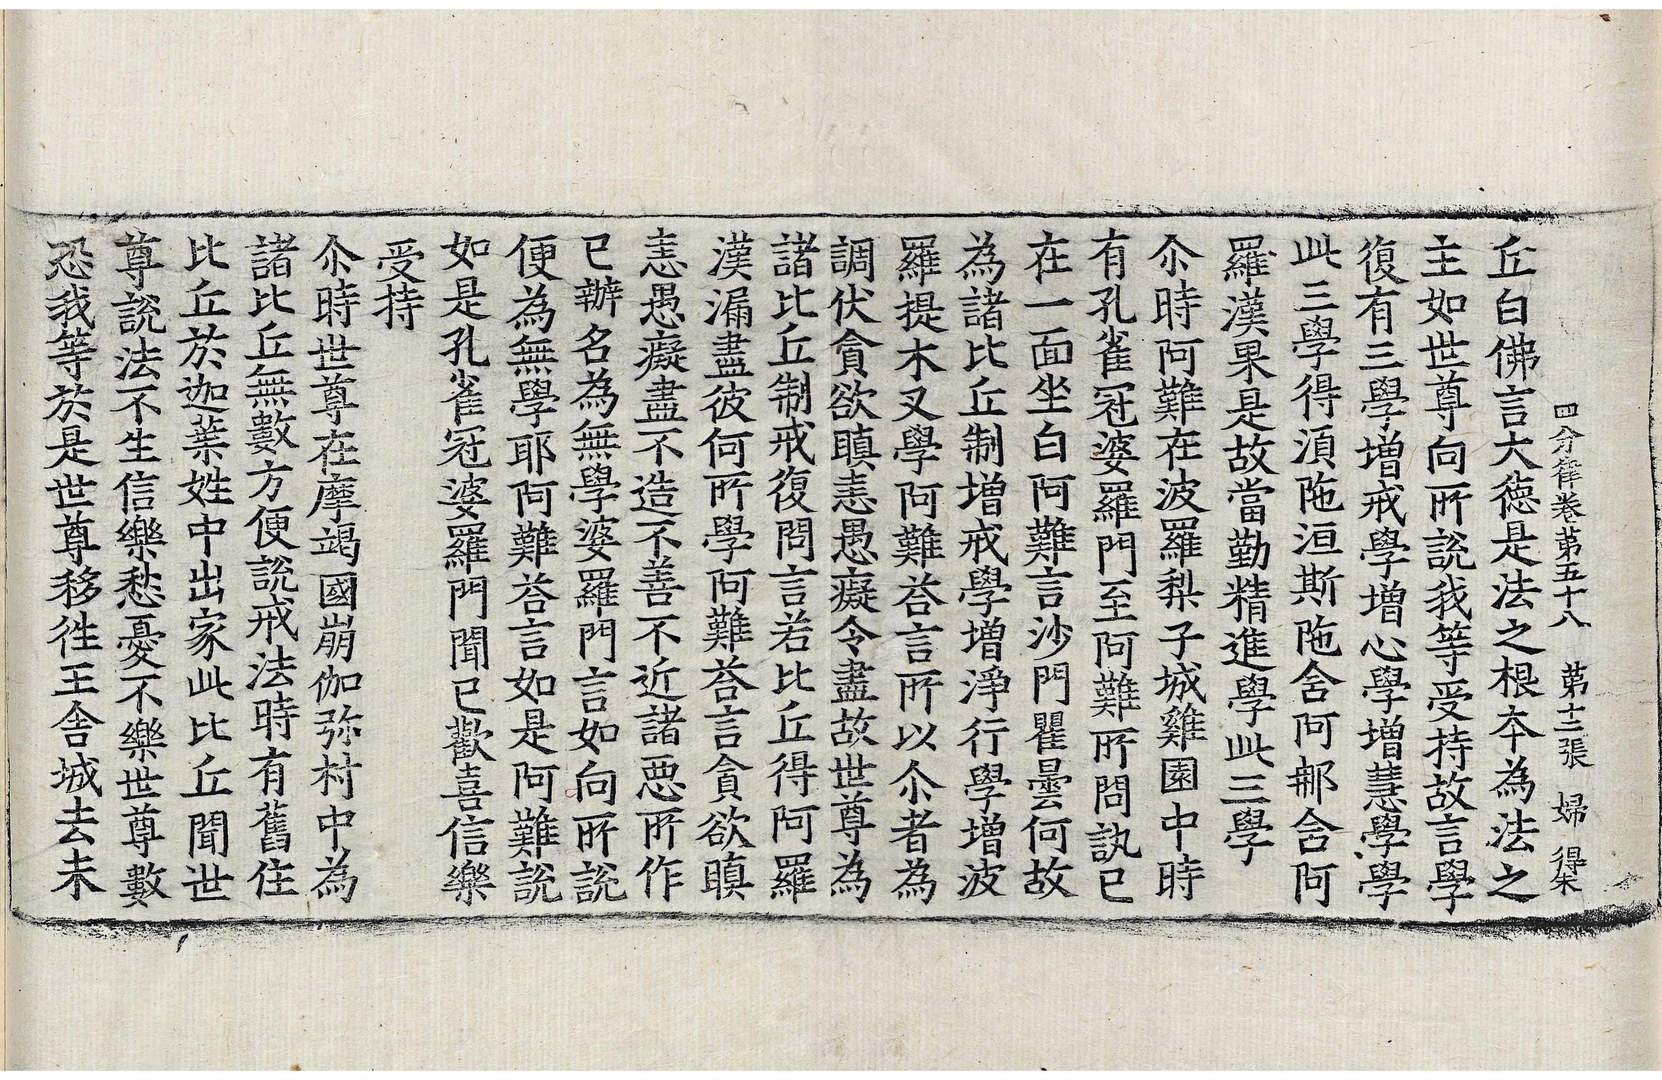 四分律卷第五十八　第十二張　婦　得朱
丘白佛言大德是法之根本為法之
主如世尊向所說我等受持故言學
復有三學增戒學增心學增慧學學
此三學得湏陁洹斯陁含阿那含阿
羅漢果是故當勤精進學此三學
尒時阿難在波羅梨子城雞園中時
有孔雀冠婆羅門至阿難所問訊已
在一面坐白阿難言沙門瞿曇何故
為諸比丘制增戒學增淨行學增波
羅提木叉學阿難荅言所以尒者為
調伏貪欲瞋恚愚癡令盡故世尊為
諸比丘制戒復問言若比丘得阿羅
漢漏盡彼何所學阿難荅言貪欲瞋
恚愚癡盡不造不善不近諸惡所作
已辦名為無學婆羅門言如向所說
便為無學耶阿難荅言如是阿難說
如是孔雀冠婆羅門聞已歡喜信樂
受持
尒時世尊在摩竭國崩伽弥村中為
諸比丘無數方便說戒法時有舊住
比丘於迦葉姓中出家此比丘聞世
尊說法不生信樂愁憂不樂世尊數
恐我等於是世尊移徃王舍城去未